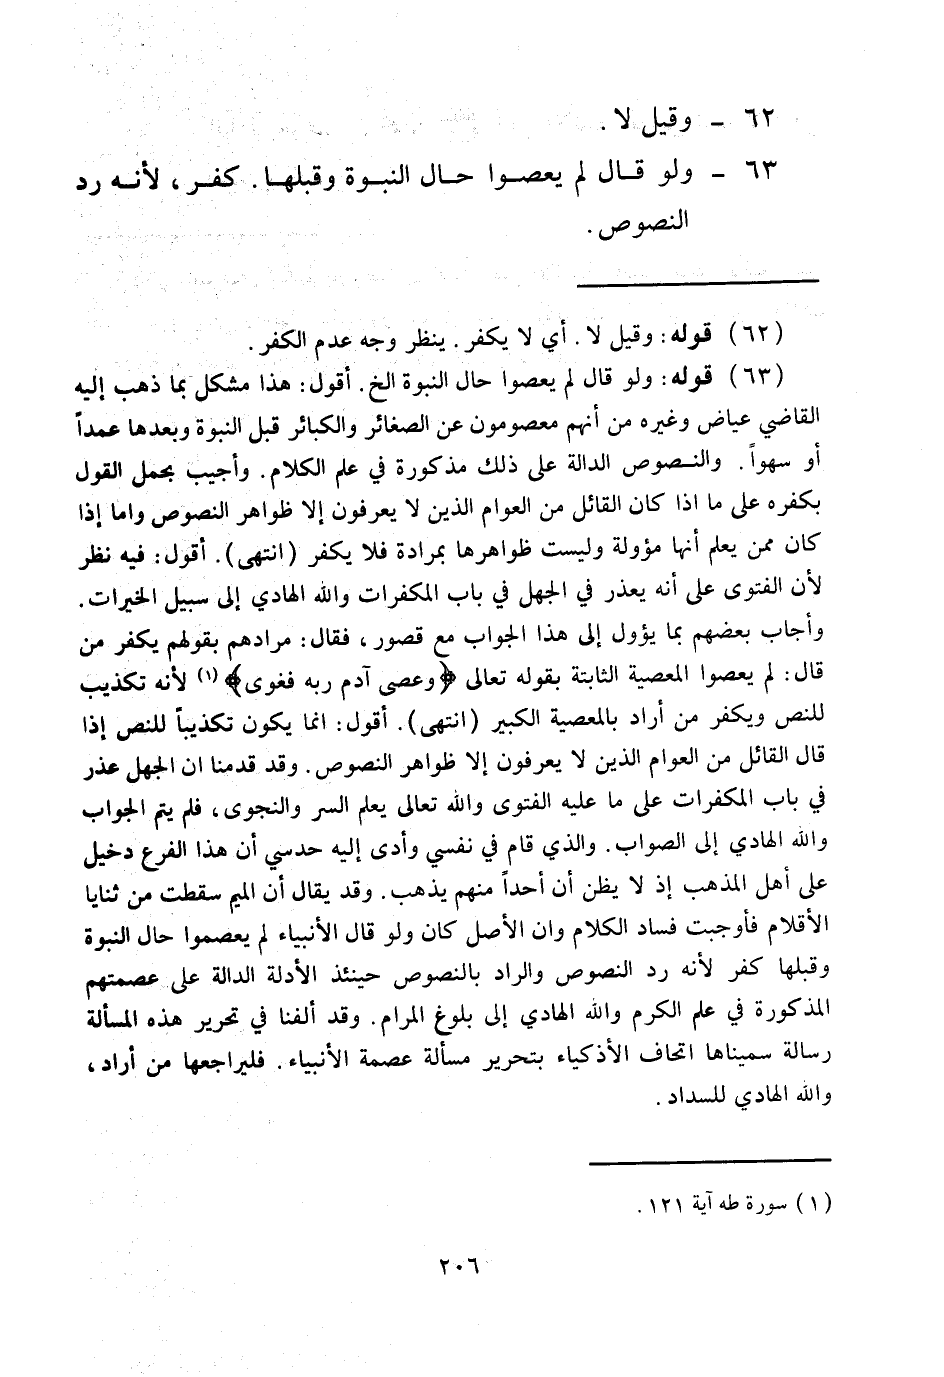 ٦٢ – وقيل لا .
٦٣ – ولو قـال لم يعصـوا حـال النبـوة وقبلهـا. كفـر ، لأنـه رد
النصوص .
(٦٢) قوله: وقيل لا. أي لا يكفر. ينظر وجه عدم الكفر.
(٦٣) قوله: ولو قال لم يعصوا حال النبوة الخ. أقول: هذا مشكل بما ذهب إليه
القاضي عياض وغيره من أنهم معصومون عن الصغائر والكبائر قبل النبوة وبعدها عمداً
أو سهواً. والنـصوص الدالة على ذلك مذكورة في علم الكلام. وأجيب بحمل القول
بكفره على ما اذا كان القائل من العوام الذين لا يعرفون إلا ظواهر النصوص واما إذا
كان ممن يعلم أنها مؤولة وليست ظواهرها بمرادة فلا يكفر (انتهى). أقول: فيه نظر
لأن الفتوى على أنه يعذر في الجهل في باب المكفرات والله الهادي إلى سبيل الخيرات.
وأجاب بعضهم بما يؤول إلى هذا الجواب مع قصور ، فقال: مرادهم بقولهم يكفر من
قال: لم يعصوا المعصية الثابتة بقوله تعالى ﴿وعصى آدم ربه فغوى﴾ (١) لأنه تكذيب
للنص ويكفر من أراد بالمعصية الكبير (انتهى). أقول: انما يكون تكذيباً للنص إذا
قال القائل من العوام الذين لا يعرفون إلا ظواهر النصوص. وقد قدمنا ان الجهل عذر
في باب المكفرات على ما عليه الفتوى والله تعالى يعلم السر والنجوى، فلم يتم الجواب
والله الهادي إلى الصواب. والذي قام في نفسي وأدى إليه حدسي أن هذا الفرع دخيل
على أهل المذهب إذ لا يظن أن أحداً منهم يذهب. وقد يقال أن الميم سقطت من ثنايا
الأقلام فأوجبت فساد الكلام وان الأصل كان ولو قال الأنبياء لم يعصموا حال النبوة
وقبلها كفر لأنه رد النصوص والراد بالنصوص حينئذ الأدلة الدالة على عصمتهم
المذكورة في علم الكرم والله الهادي إلى بلوغ المرام. وقد ألفنا في تحرير هذه المسألة
رسالة سميناها اتحاف الأذكياء بتحرير مسألة عصمة الأنبياء. فليراجعها من أراد،
والله الهادي للسداد .
(١) سورة طه آية ١٢١ .
٢٠٦